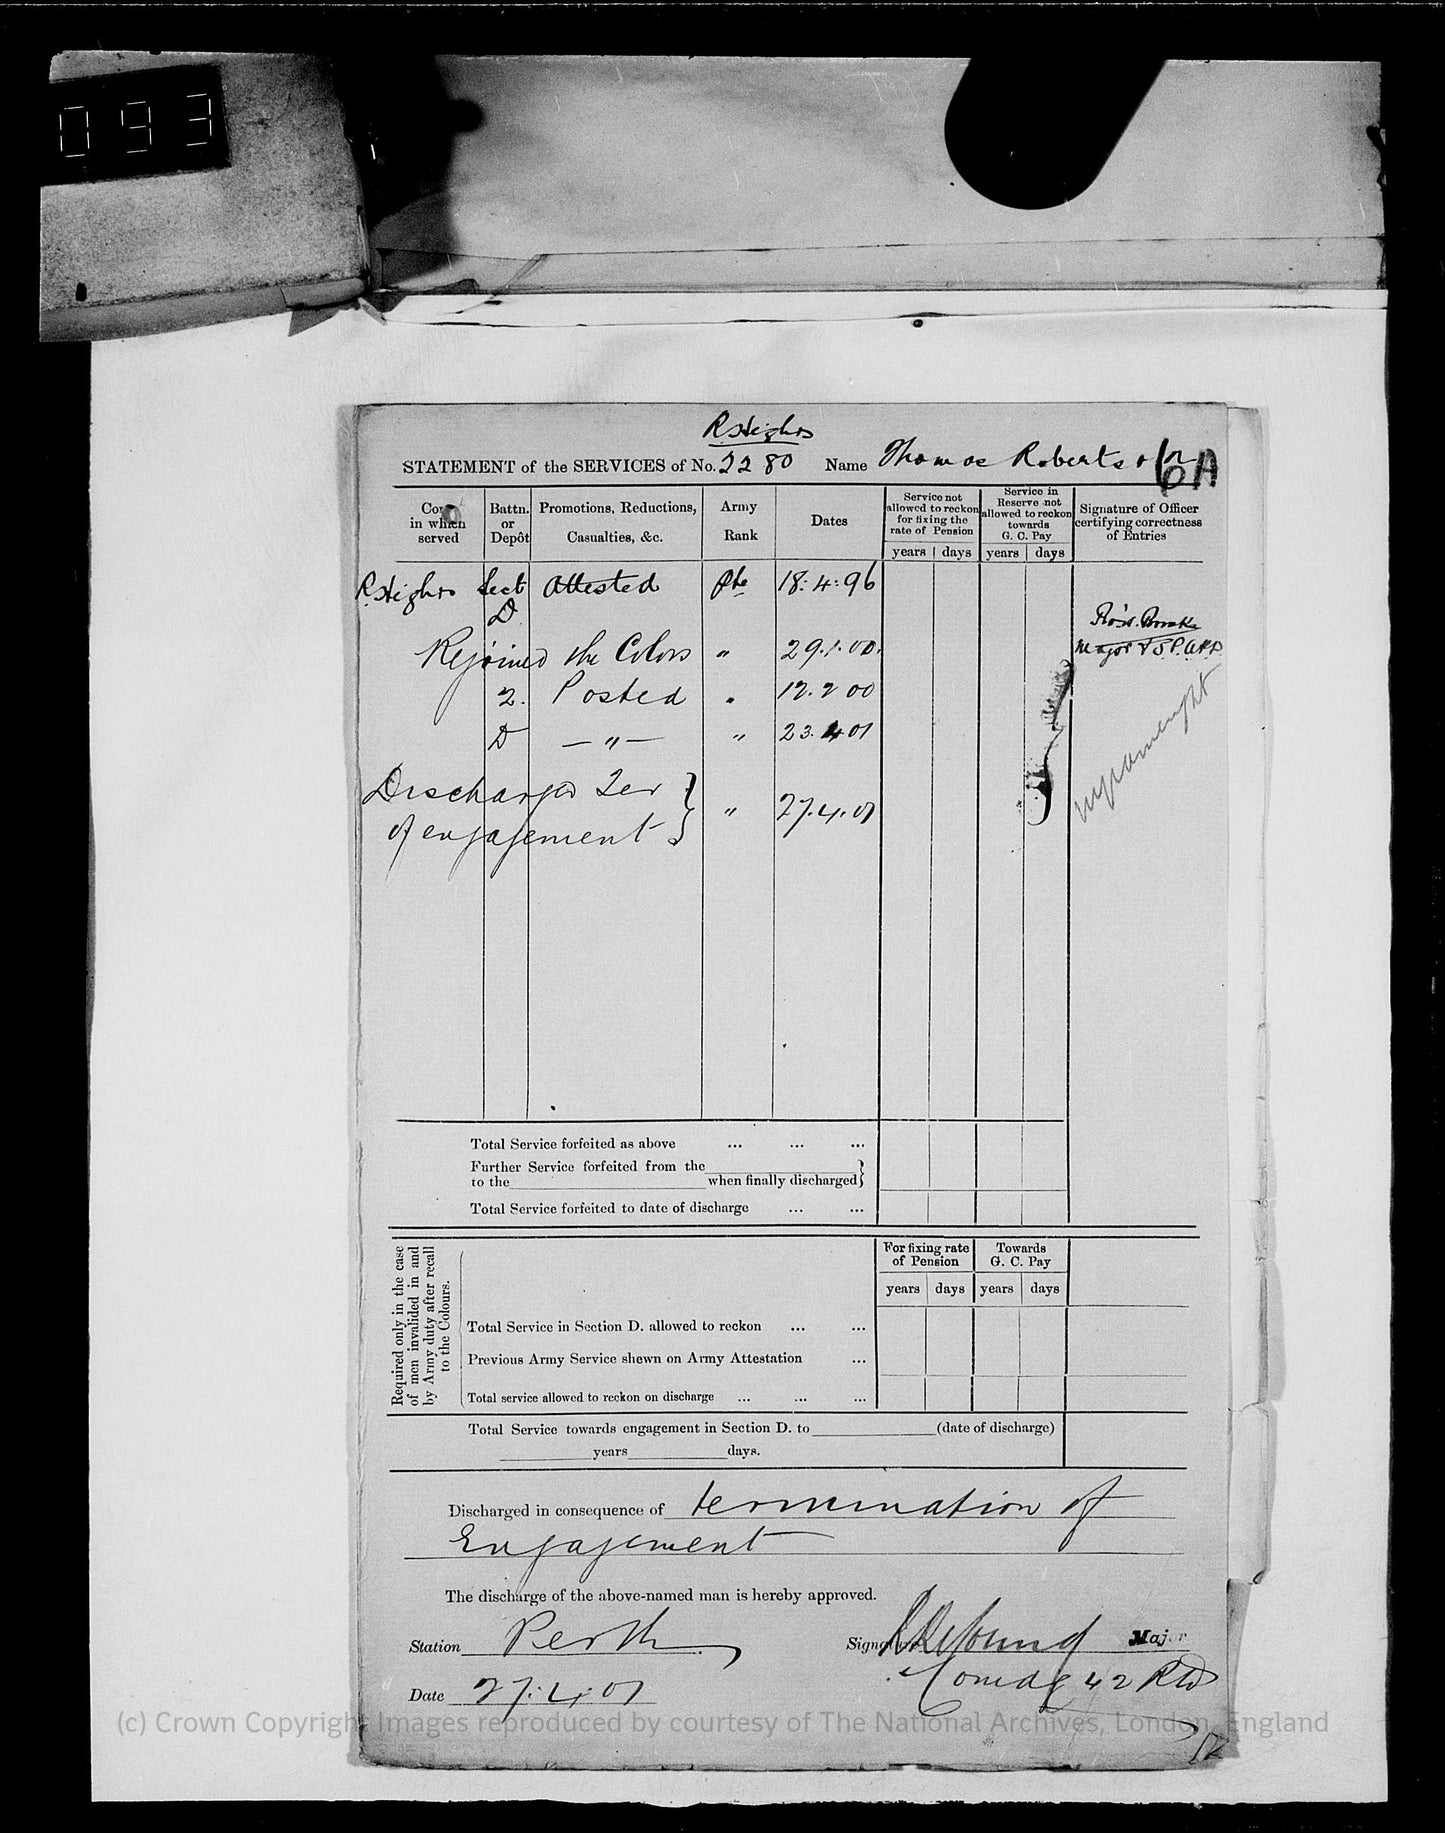 093
R. Highrs
STATEMENT of the SERVICES of No. 2280 Name Thomas Robertson
6A
Corps in which served
Battn. or Depôt
Promotions, Reductions, Casualties, &c.
Army Rank
Dates
Service not allowed to reckon for fixing the rate of Pension
years days
Service in Reserve not allowed to reckon towards G. C. Pay
years days
Signature of Officer certifying correctness of Entries
R. Highrs Sect D Attested Pte 18:4:96
Major
Rejoined the Colors " 29.1.00.
2. Posted " 12.2 00
D — " — " 23.4 01
Discharged Ter of engagement } " 27.4.01
Total Service forfeited as above ... ... ...
Further Service forfeited from the
to the when finally discharged }
Total Service forfeited to date of discharge ... ...
Required only in the case of men invalided in and by Army duty after recall to the Colours.
For fixing rate of Pension
Towards G. C. Pay
years days years days
Total Service in Section D. allowed to reckon ... ...
Previous Army Service shewn on Army Attestation ...
Total service allowed to reckon on discharge ... ... ...
Total Service towards engagement in Section D. to (date of discharge)
years days.
Discharged in consequence of termination of
Engagement
The discharge of the above-named man is hereby approved.
Station Perth Signature Major
Comdg 42 R D
Date 27.4.01
(c) Crown Copyright Images reproduced by courtesy of The National Archives, London, England